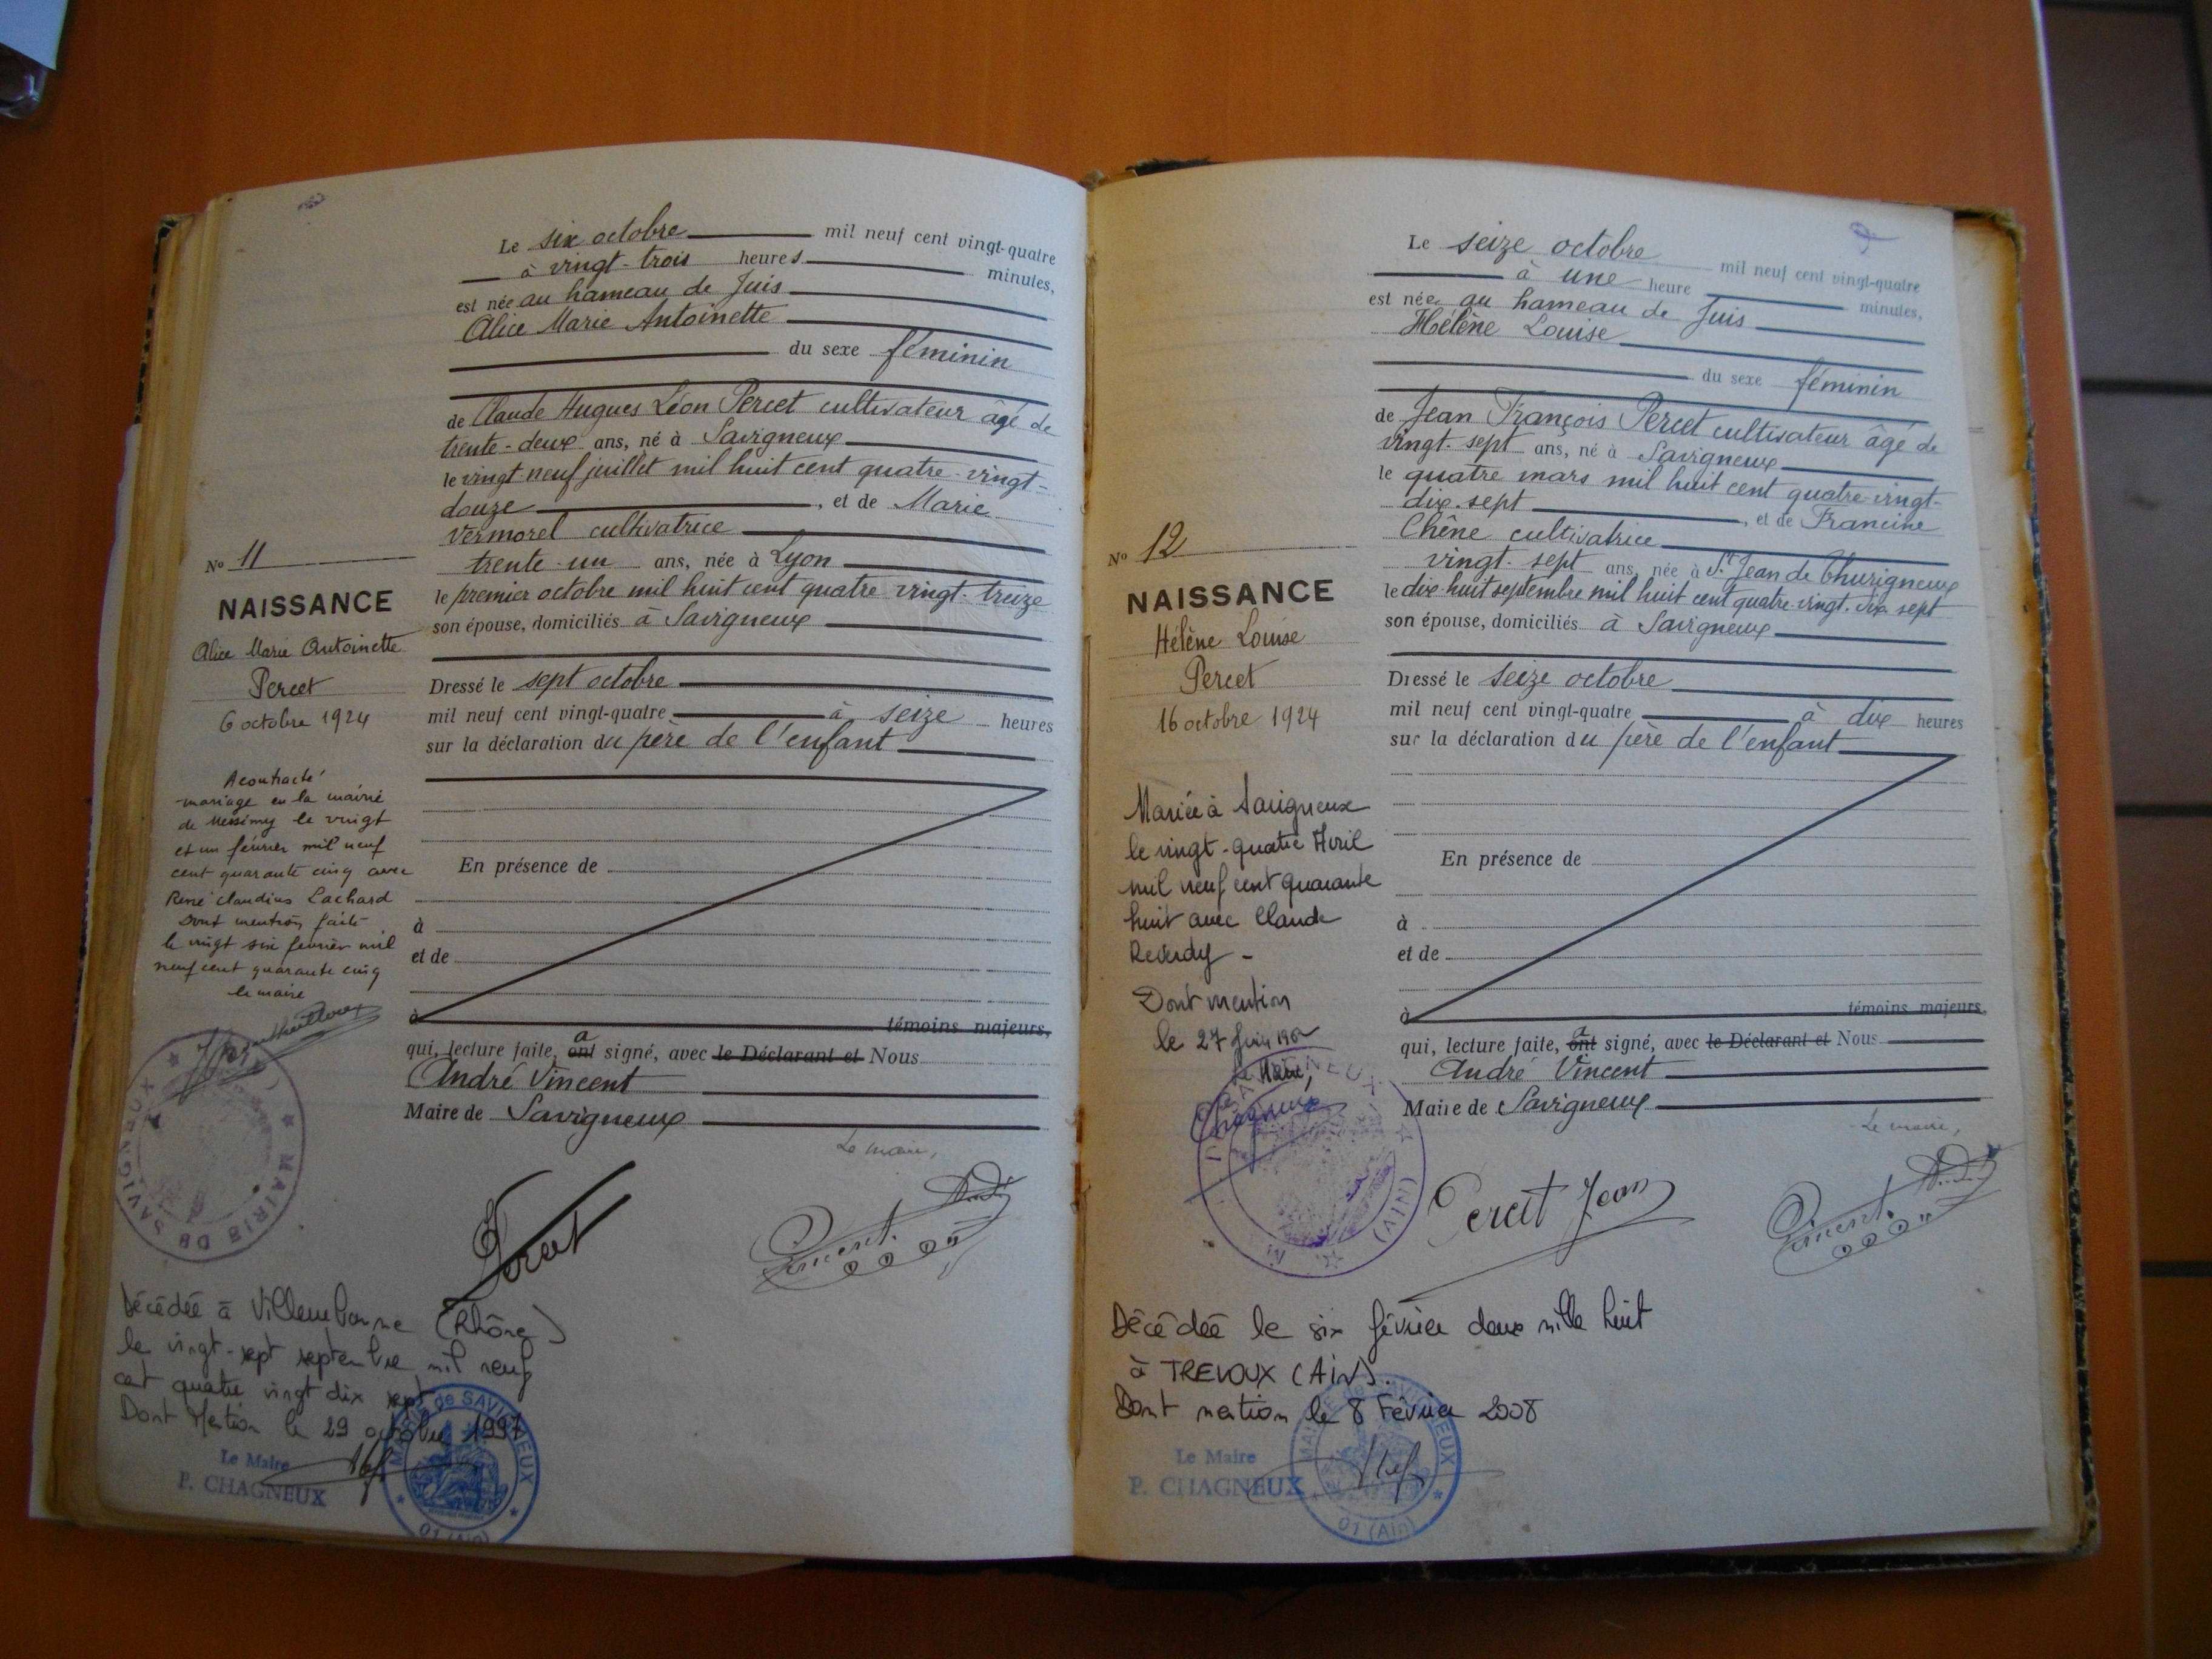 Le six octobre mil neuf cent vingt-quatre
à vingt-trois heures minutes,
est née au hameau de Juis
Alice Marie Antoinette
du sexe féminin
de Claude Hugues Léon Percet cultivateur âgé de
trente-deux ans, né à Savigneux
le vingt neuf juillet mil huit cent quatre-vingt-
douze, et de Marie
Vermorel cultivatrice
trente-un ans, née à Lyon
le premier octobre mil huit cent quatre vingt-treize
son épouse, domiciliés à Savigneux
Dressé le sept octobre
mil neuf cent vingt-quatre à seize heures
sur la déclaration du père de l'enfant
En présence de
à
et de
à témoins majeurs,
qui, lecture faite, ont a signé, avec le Déclarant et Nous
André Vincent
Maire de Savigneux
Le maire,
Percet
Vincent
No 11
NAISSANCE
Alice Marie Antoinette
Percet
6 octobre 1924
A contracté
mariage en la mairie
de Messimy le vingt
et un février mil neuf
cent quarante cinq avec
René Claudius Lachard
Dont mention faite
le vingt six février mil
neuf cent quarante cinq
le maire
MAIRIE DE SAVIGNEUX
Décédée à Villeurbanne (Rhône)
le vingt-sept septembre mil neuf
cent quatre vingt dix sept
Dont Mention le 29 octobre 1997
Le Maire
P. CHAGNEUX
MAIRIE de SAVIGNEUX
01 (Ain)
Le seize octobre mil neuf cent vingt-quatre
à une heure minutes,
est née au hameau de Juis
Hélène Louise
du sexe féminin
de Jean François Percet cultivateur âgé de
vingt-sept ans, né à Savigneux
le quatre mars mil huit cent quatre-vingt-
dix-sept, et de Francine
Chêne cultivatrice
vingt-sept ans, née à St Jean de Thurigneux
le dix-huit septembre mil huit cent quatre-vingt-dix sept
son épouse, domiciliés à Savigneux
Dressé le seize octobre
mil neuf cent vingt-quatre à dix heures
sur la déclaration du père de l'enfant
En présence de
à
et de
à témoins majeurs,
qui, lecture faite, ont a signé, avec le Déclarant et Nous
André Vincent
Maire de Savigneux
Le maire,
Percet Jean
Vincent
No 12
NAISSANCE
Hélène Louise
Percet
16 octobre 1924
Mariée à Savigneux
le vingt-quatre Avril
mil neuf cent quarante
huit avec Claude
Reverdy -
Dont mention
le 27 Juin
Le Maire,
Chagneux
Décédée le six février deux mille huit
à TREVOUX (AIN).
Dont mention le 8 Février 2008
Le Maire
P. CHAGNEUX
MAIRIE de SAVIGNEUX
01 (Ain)